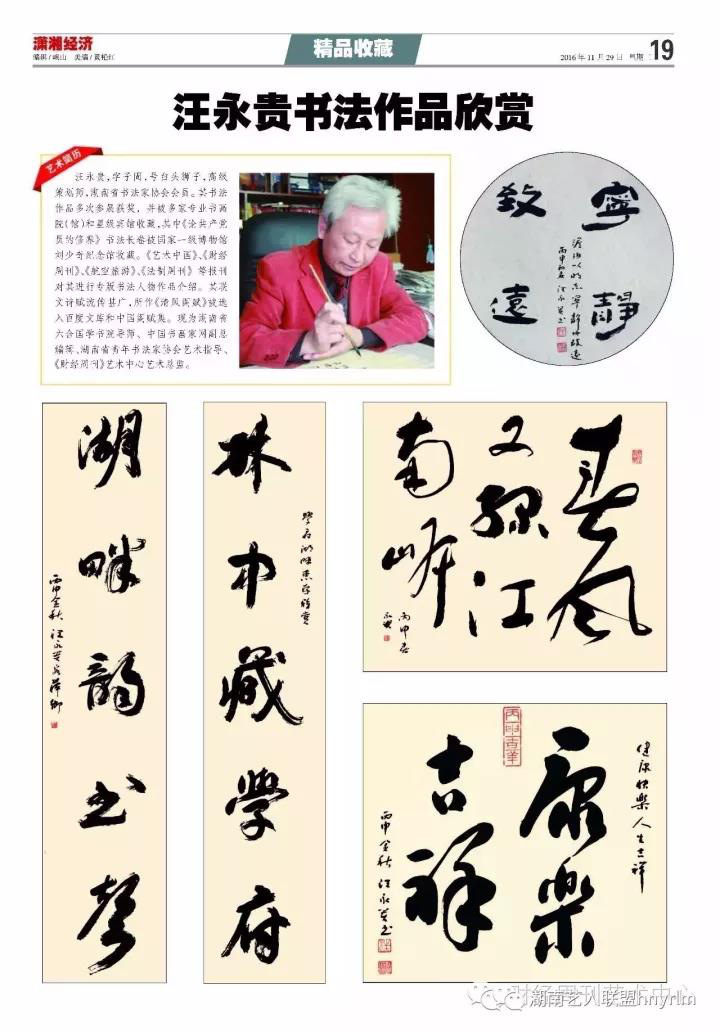 潇湘经济
编辑/岷山 美编/黄柏红
精品收藏
2016年11月29日 星期二
19
汪永贵书法作品欣赏
艺术简历
汪永贵,字子周,号白头狮子,高级
策划师,湖南省书法家协会会员。其书法
作品多次参展获奖,并被多家专业书画
院(馆)和星级宾馆收藏,其中《论共产党
员的修养》书法长卷被国家一级博物馆
刘少奇纪念馆收藏。《艺术中国》、《财经
周刊》、《航空旅游》、《法制周刊》等报刊
对其进行专版书法人物作品介绍。其联
文诗赋流传甚广,所作《清风阁赋》被选
入百度文库和中国阁赋集。现为湖南省
六合国学书院导师、中国书画家网副总
编辑,湖南省青年书法家协会艺术指导、
《财经周刊》艺术中心艺术总监。
寧靜
致遠
丙申初冬汪永贵书
林中藏學府
湖畔韵书聲
丙申金秋汪永贵於萍乡
春风
又绿江
南岸
丙申春
永贵
健康快樂人生吉祥
康樂
吉祥
丙申金秋汪永贵书
丙申吉羊
财经周刊艺术中心
湖南艺人联盟hnyrlm